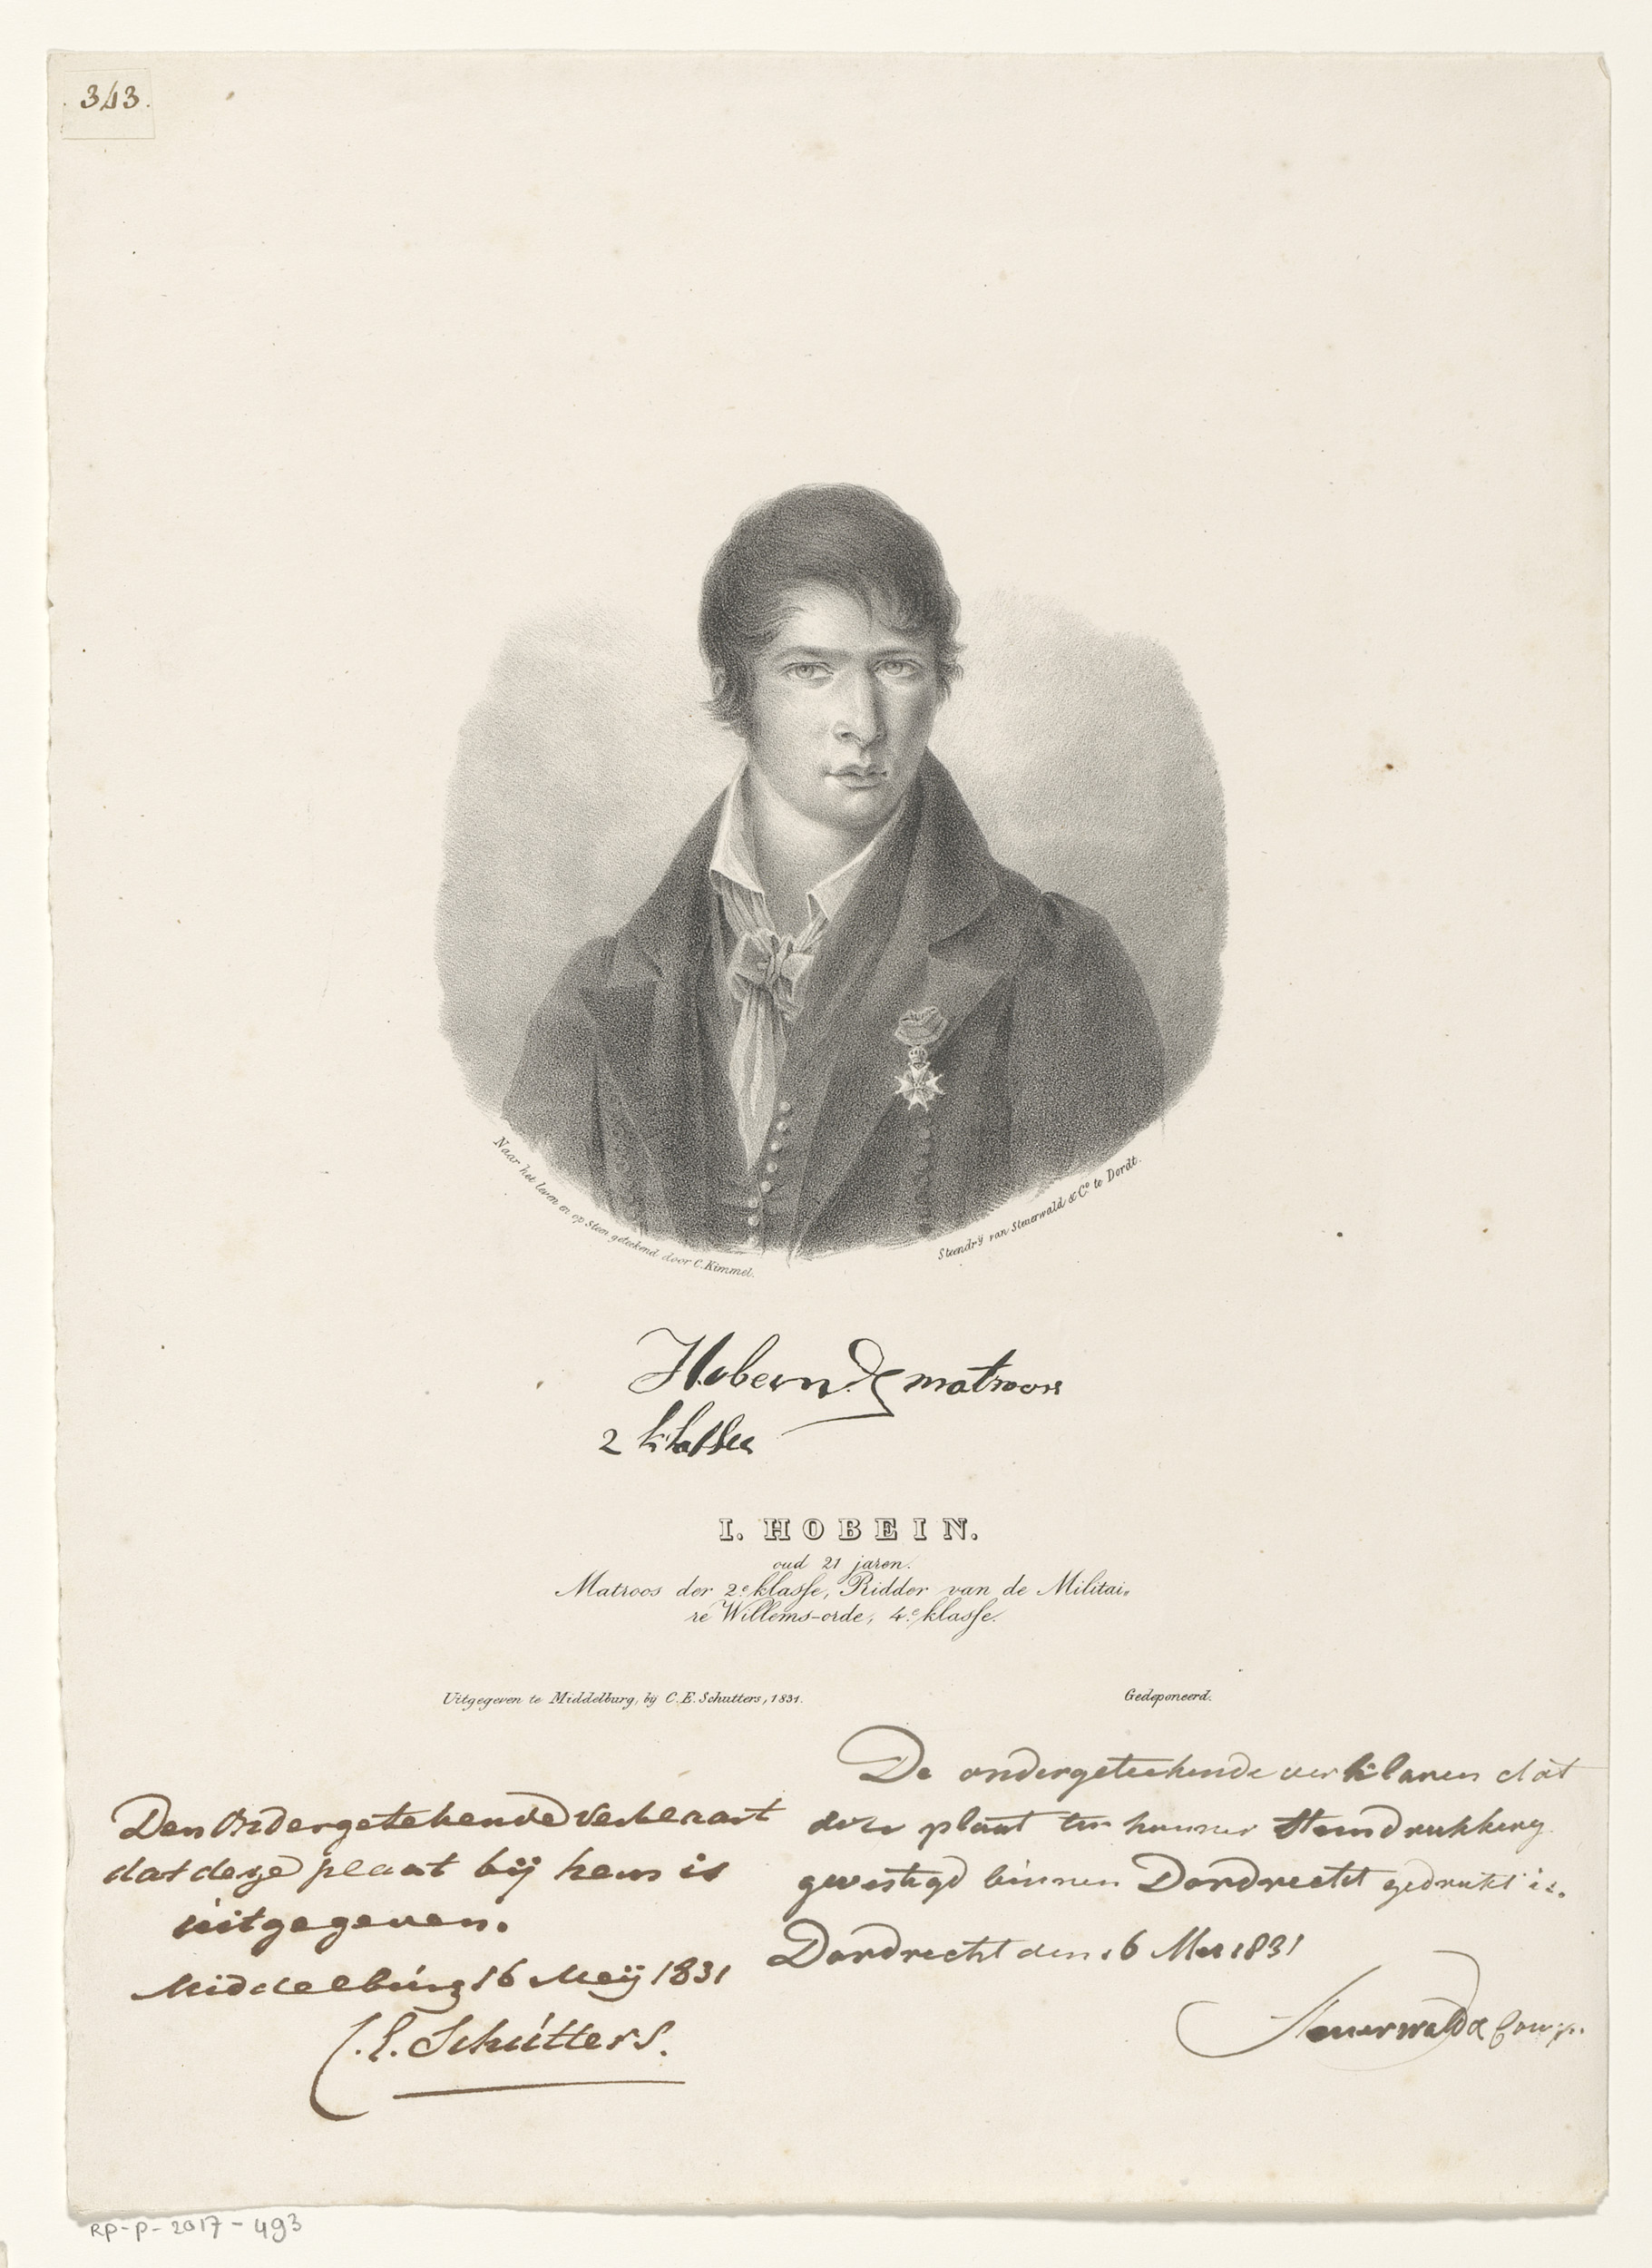 343.
Naar het leven en op Steen geteekend door C. Kimmel.
Steendrij van Steuerwald & Co. te Dordt.
Hobein matroos
2 klasse
I. HOBEIN.
oud 21 jaren.
Matroos der 2e klasse, Ridder van de Militai-
re Willems-orde, 4e klasse.
Uitgegeven te Middelburg, bij C. E. Schutters, 1831.
Gedeponeerd.
Den Ondergetekende verklaart
dat deze plaat bij hem is
uitgegeven.
Middelburg 16 Meij 1831
C. E. Schutters.
De ondergeteekende verklaren dat
deze plaat ten hunner Steendrukkerij
gevestigd binnen Dordrecht gedrukt is.
Dordrecht den 16 Mei 1831
Steuerwald & Comp.
RP-P-2017-493